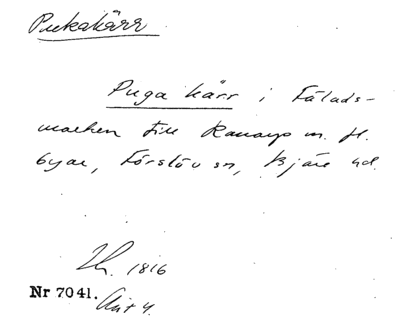 Pukakärr
Puga kärr i Fälads-
marken till Ranarp m. fl.
byar, Förslöv sn, Bjäre hd.
1816
Nr 7041.